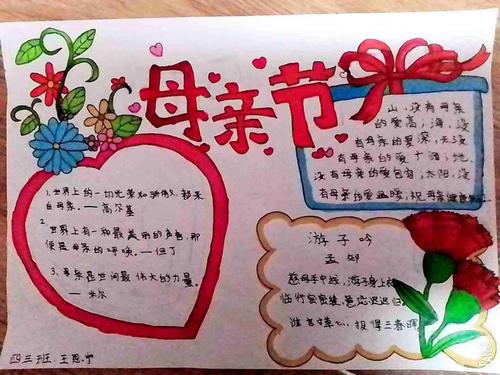 母亲节
1、世界上的一切光荣和骄傲，都来
自母亲。——高尔基
2、
世界上有一种最美丽的声音，那
便是母亲的呼唤。—但丁
3、母亲是世间最伟大的力量。
— 米尔
山，没有母亲
的爱高；海，没
有母亲的爱深；天，没
有母亲的爱广阔；地，
没有母亲的爱包容；太阳，没
有母亲的爱温暖；祝母亲
游子吟
孟郊
慈母手中线，游子身上
临行密密缝，意恐迟迟归
谁言寸草心，报得三春晖
四三班